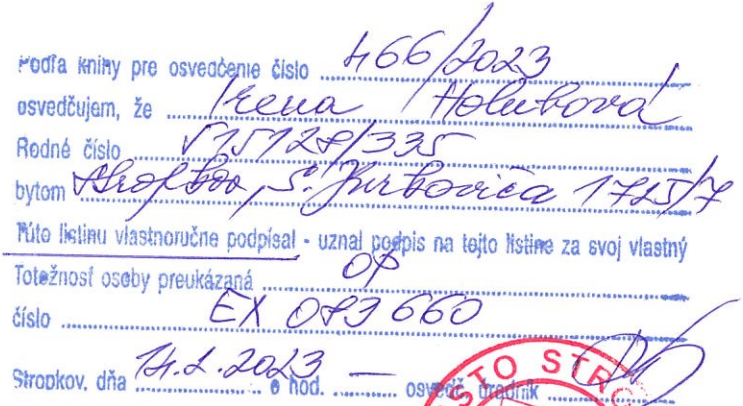 Podľa knihy pre osvedčenie číslo 466/2023
osvedčujem, že Irena Holubová
Rodné číslo 515128/335
bytom Stropkov, Š. Jurkoviča 1725/7
Túto listinu vlastnoručne podpísal - uznal podpis na tejto listine za svoj vlastný
Totežnosť osoby preukázaná OP
číslo EX 083660
Stropkov, dňa 14.2.2023 o hod. — osvedč. úradník
STO STRO